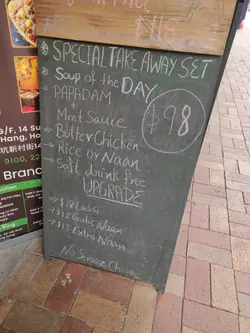 SPECIAL TAKE AWAY SET
Soup of the DAY
PAPADAM
+
Mint Sauce
$98
Butter Chicken
Rice or Naan
Soft drink free
UPGRADE
$12 Lassi
$12 Garlic Naan
$15 Extra Naan
No Service Charge
/F, 14 Su
Hang, Ho
坑新村街14
9100, 22
Bran